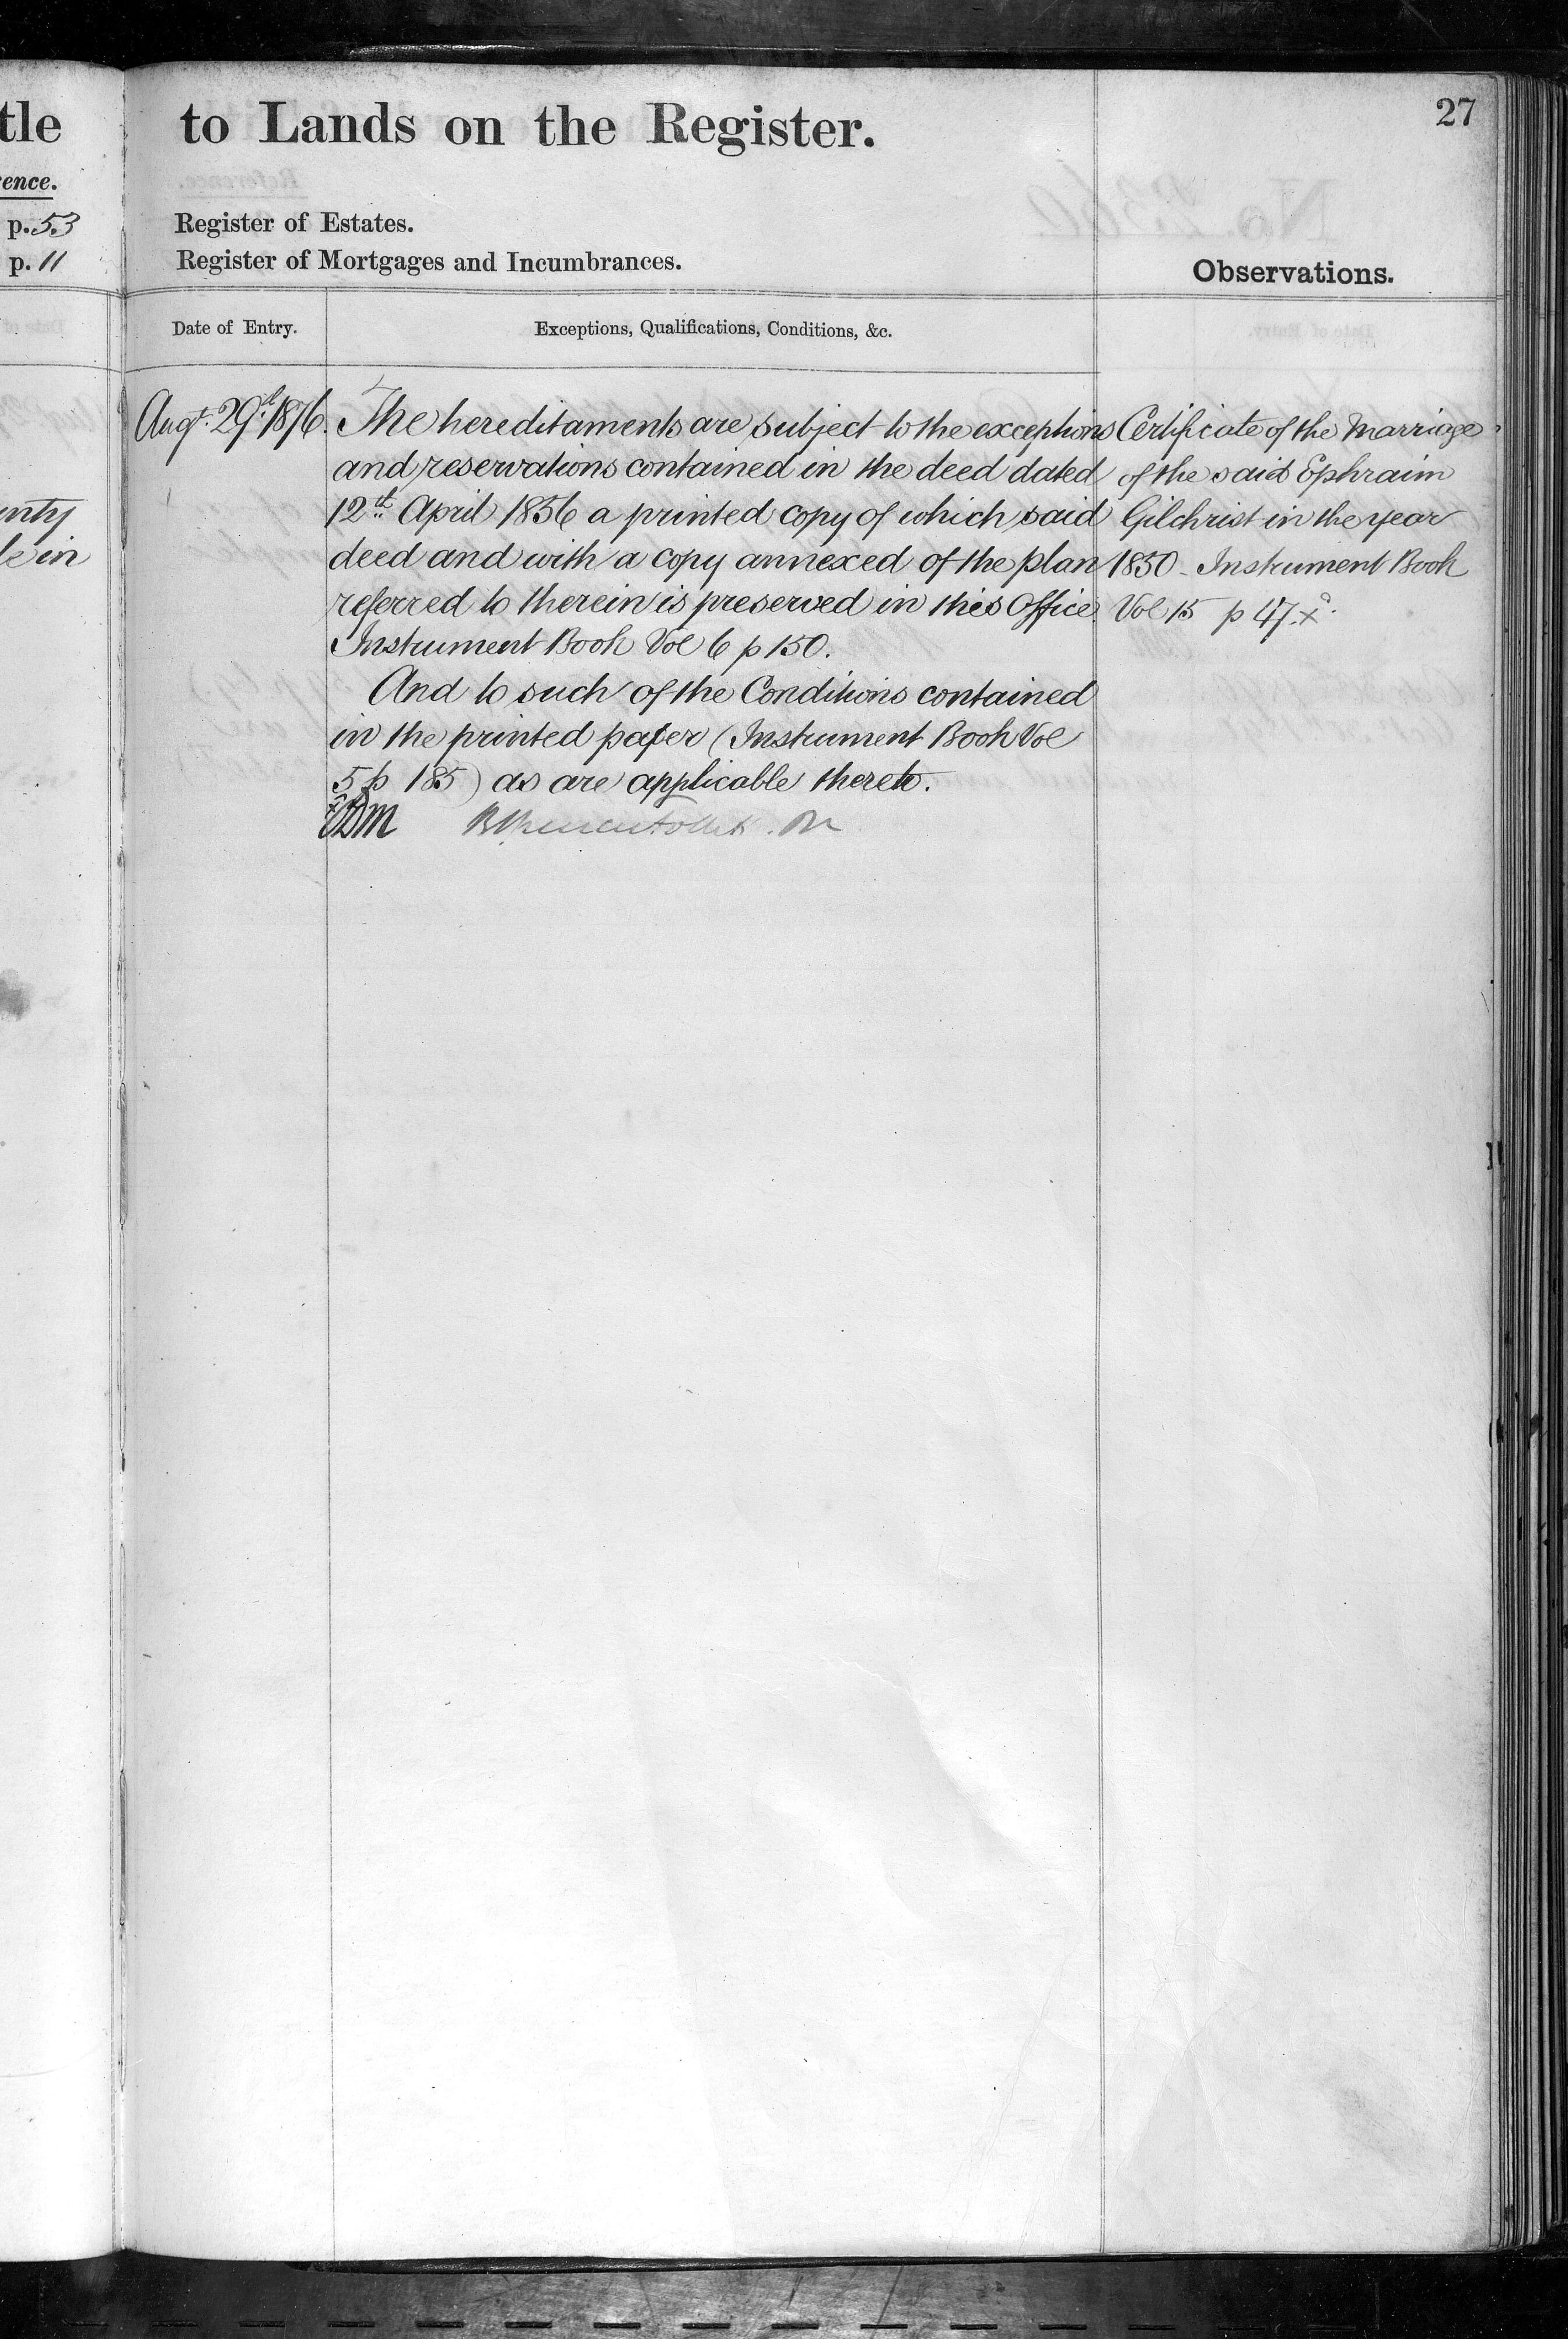 tle
ence.
p. 53
p. 11
nty
le in
27
to Lands on the Register.
Register of Estates.
Register of Mortgages and Incumbrances.
Observations.
Date of Entry.
Exceptions, Qualifications, Conditions, &c.
Augt. 29th 1876.
The hereditaments are subject to the exceptions
and reservations contained in the deed dated
12th April 1856 a printed copy of which said
deed and with a copy annexed of the plan
referred to therein is preserved in this Office
Instrument Book Vol 6 p 150.
And to such of the Conditions contained
in the printed paper (Instrument Book Vol
5 p 185) as are applicable thereto.
Certificate of the Marriage
of the said Ephraim
Gilchrist in the year
1850 - Instrument Book
Vol 15 p 47.